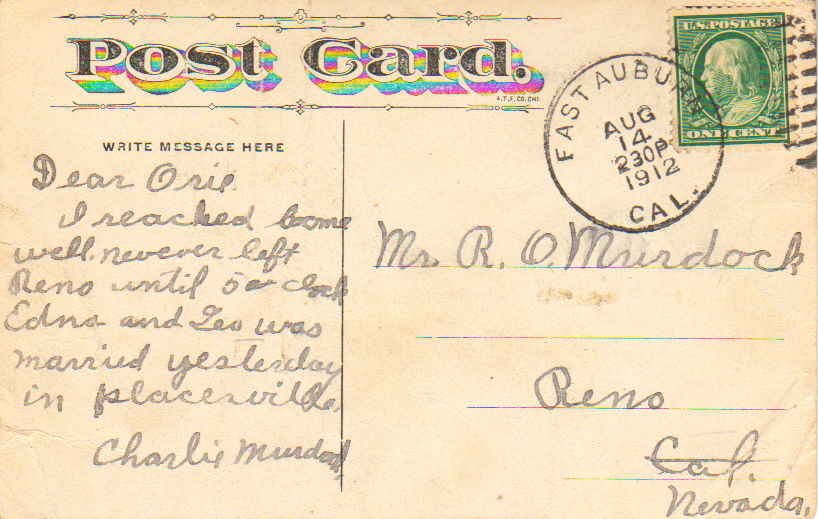 Post Card.
A.T.F. CO. CHI
WRITE MESSAGE HERE
Dear Orie
I reached home
well. never left
Reno until 5 o clock
Edna and Geo was
married yesterday
in placerville,
Charlie Murdock
EAST AUBURN
AUG
14
230P
1912
CAL.
U.S. POSTAGE
ONE CENT
Mr. R. O. Murdock
Reno
Cal.
Nevada.